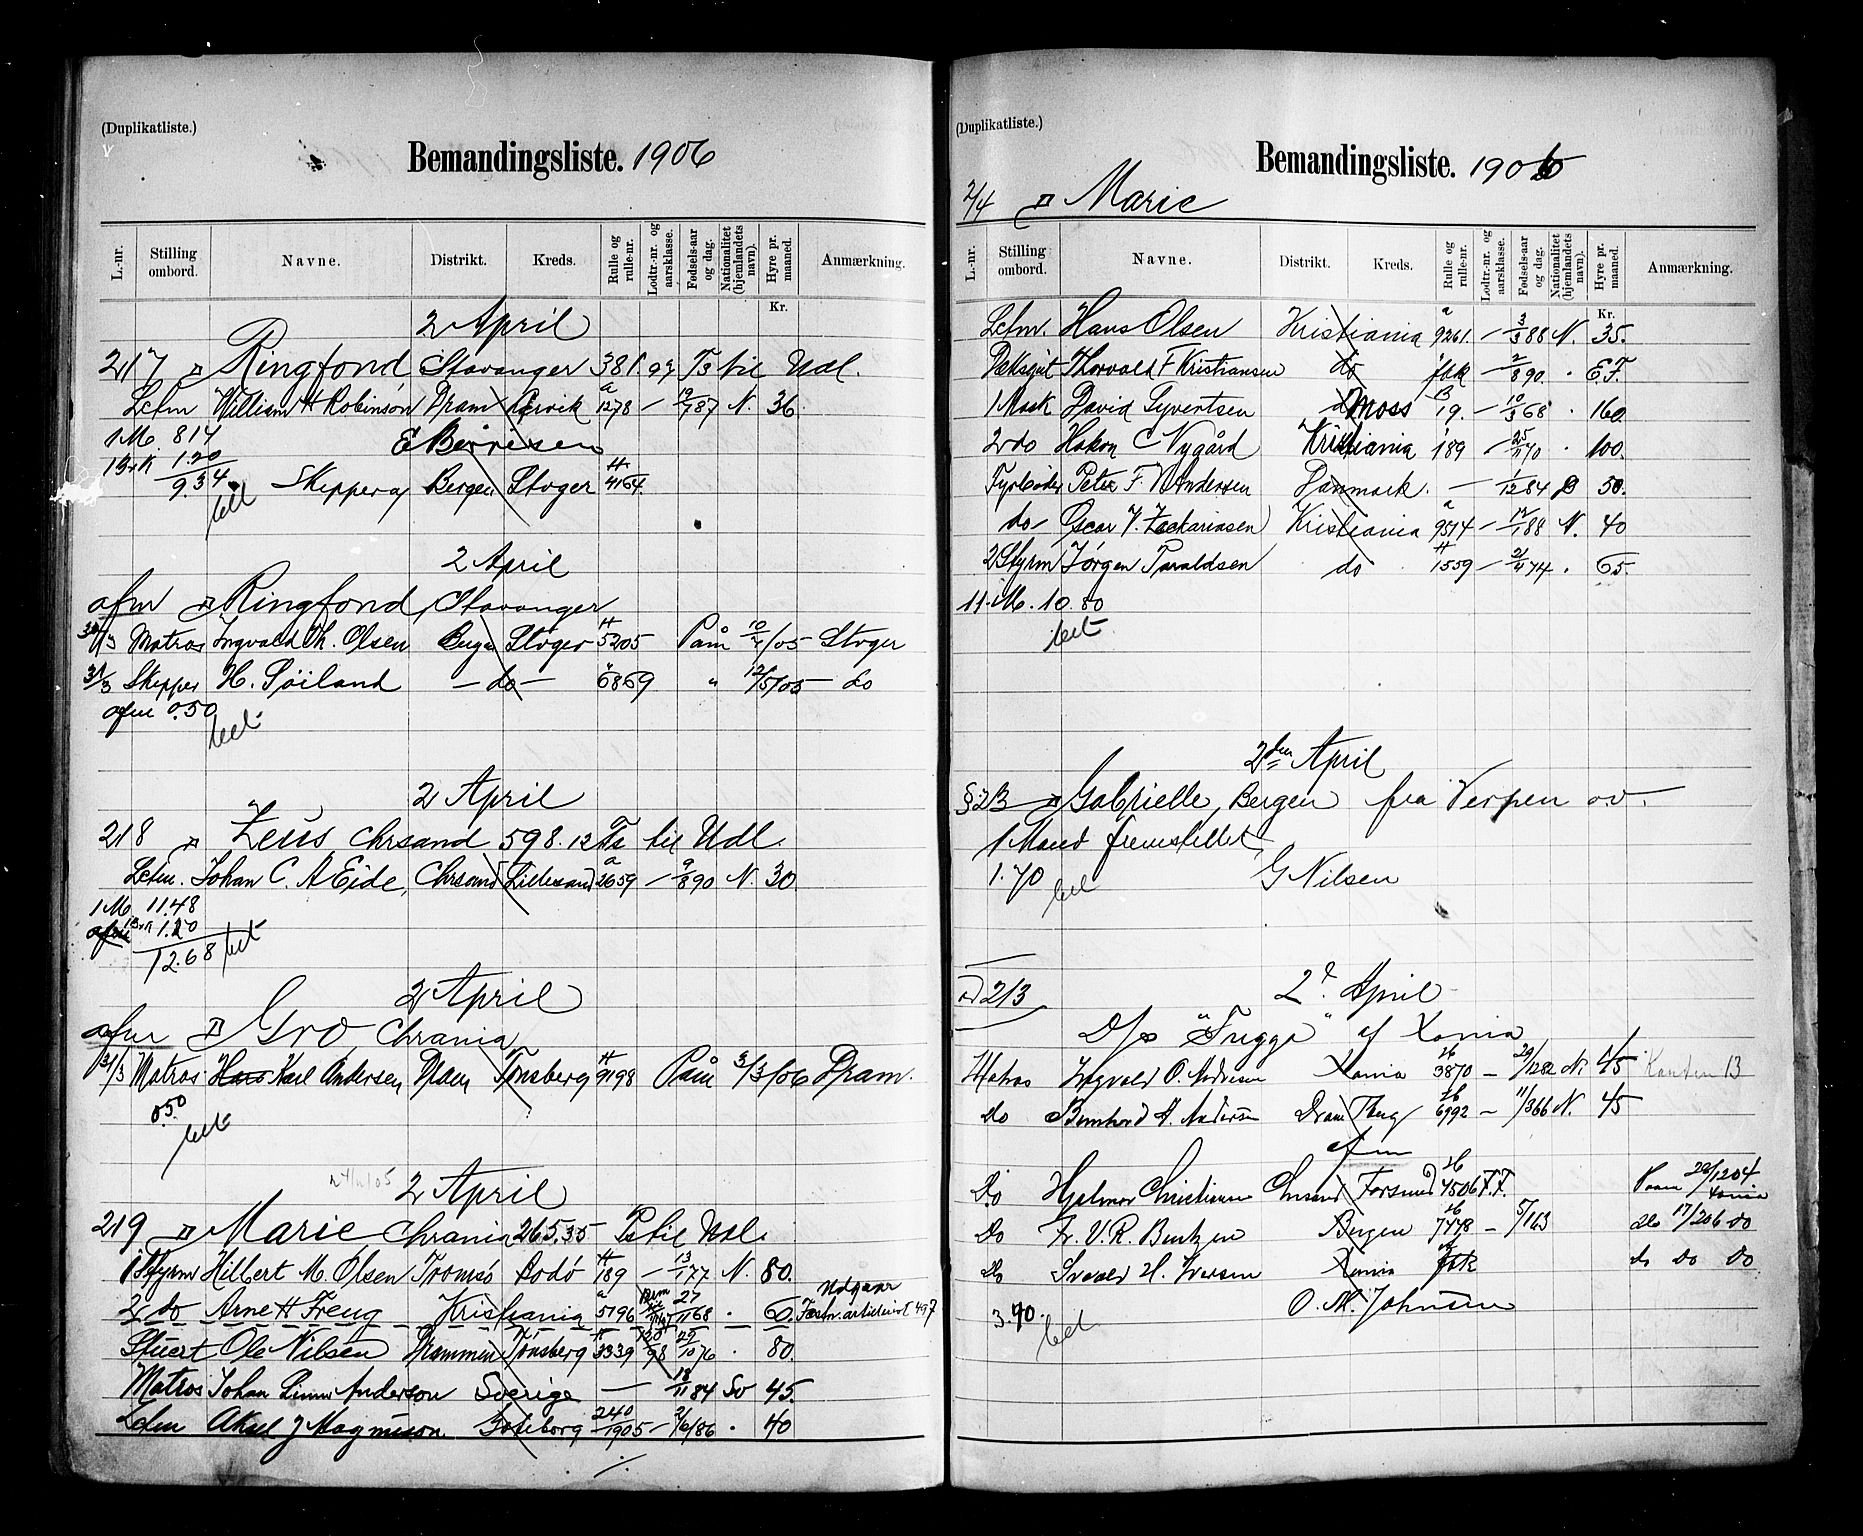 (Duplikatliste.)
Bemandingsliste. 1906
L.-nr. Stilling ombord. Navne. Distrikt. Kreds. Rulle og rulle-nr. Lodtr.-nr. og aarsklasse. Fødsels-aar og dag. Nationalitet (hjemlandets navn). Hyre pr. maaned. Anmærkning.
Kr.
2 April
217 Ringfond Stavanger 381.99 Ts til Udl.
Letm William H Robinson Dram Larvik a 1278 — 19/7 87 N. 36
1 M. 8.14 E Børresen
1.20
9.34 Skipper af Bergen Stvger H 4164
bet
2 April
afm Ringfond, Stavanger
30/3 Matros Ingvald Th. Olsen Bergen Stvger H 5205 Paam 10/4/05 Stvger
31/3 Skipper H. Söiland — do — " 6869 " 12/5/05 do
afm 0.50
bet
2 April
218 Zeus, Chrsand 598.12 Ts til Udl.
Letm. Johan C. A Eide, Chrsand Lillesand a 2659 — 9/8 90 N. 30
1 M 11.48
1.20
12.68 bet
2 April
afm Gro Chrania
31/3 Matros Hans Karl Andersen, Dram Tønsberg H 9198 Paam 3/3/06 Dram.
0.50
bet
2 April
219 Marie Chrania 265.35 Ts til Udl.
1 Styrm Hilbert M. Olsen Tromsø Bodø H 189 — 13/1 77 N. 80.
Udgaar
2 do Arne H Freng Kristiania a 5796 27/11 68 . 60. Fastn. artillerist 497
Stuert Ole Nilsen Drammen Tønsberg H 3339 120/98 29/10 76 . 80.
Matros Johan Linus Anderson Sverige — 18/11 84 Sv 45.
Letm Aksel J Magnuson Göteborg 240/1905 — 2/6/86 . 40
(Duplikatliste.)
Bemandingsliste. 1906
2/4 Marie
L.-nr. Stilling ombord. Navne. Distrikt. Kreds. Rulle og rulle-nr. Lodtr.-nr. og aarsklasse. Fødsels-aar og dag. Nationalitet (hjemlandets navn). Hyre pr. maaned. Anmærkning.
Kr.
Letm. Hans Olsen Kristiania a 9261. — 3/3 88 N. 35.
Dæksgut Thorvald F Kristiansen do fök — 2/8 90. . E.F.
1 Mask David Syvertsen Moss B 19. — 10/3 68 . 160
2 do Hakon C Nygård Kristiania 189 — 25/11 70 . 100.
Fyrböder Peter F. V Andersen Danmark. — 1/12 84 D 50.
do Oscar V. Zackariasen Kristiania a 9574 — 12/1 88 N. 40
2 Styrm Jörgen Taraldsen do H 1559 — 2/4 74 . 65.
11. M. 10.80
bet
2den April
§ 213 Gabrielle, Bergen fra Verpen o.v.
1 Mand fremstillet
1.70 G Nilsen
bet
ad 213 2d. April
D/s "Trygg" af Xania
Matros Ingvald O. Andresen Xania H 3870 — 29/12 82 N. 45 Kanten 13
do Bernhard A. Andersen Dram Tbrg H 6992 — 11/3 66 N. 45
afm
Do Hjalmar Christiansen Chrsand Farsund H 4506 F.F. Paam 22/12 04 Xania
Do Fr. V. R. Bentzen Bergen H 7448 — 5/1 63 do 17/2 06 do
Do Sivald H. Iversen Xania fök do do do
3.90. O. M. Johnsen
bet